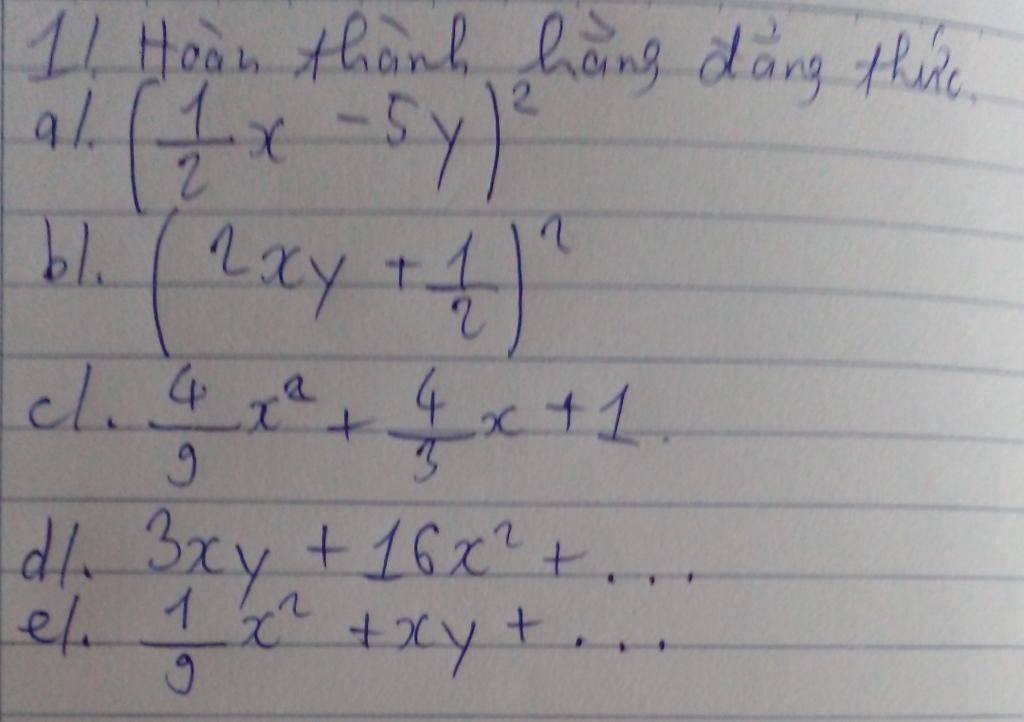 1/. Hoàn thành hằng đẳng thức.
a/. (1/2 x - 5y)²
b/. (2xy + 1/2)²
c/. 4/9 x² + 4/3 x + 1.
d/. 3xy + 16x² + ...
e/. 1/9 x² + xy + ...